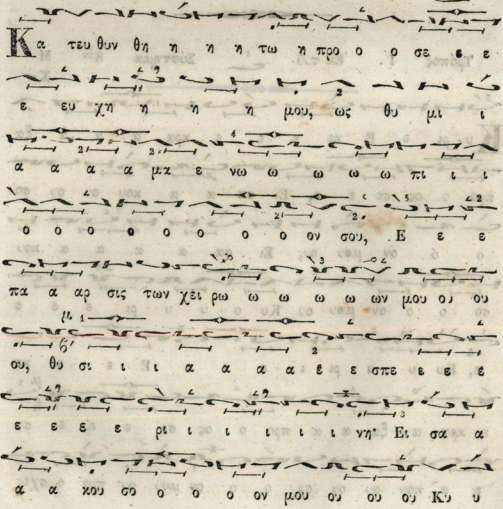 Κα τευ θυν θη η η η τω η προ ο ο σε ε ε
ε ευ χη η η η μου, ως θυ μι ι
α α α α μα ε νω ω ω ω ω πι ι ι
ο ο ο ο ο ο ο ο ον σου, Ε ε ε
πα α αρ σις των χει ρω ω ω ω ω ων μου ου ου
ου, θυ σι ι ι α α α α έ ε σπε ε ε έ
ε ε ε ε ε ρι ι ι ι ι ι νη· Ει σα α
α α κου σο ο ο ο ον μου ου ου ου Κυ υ